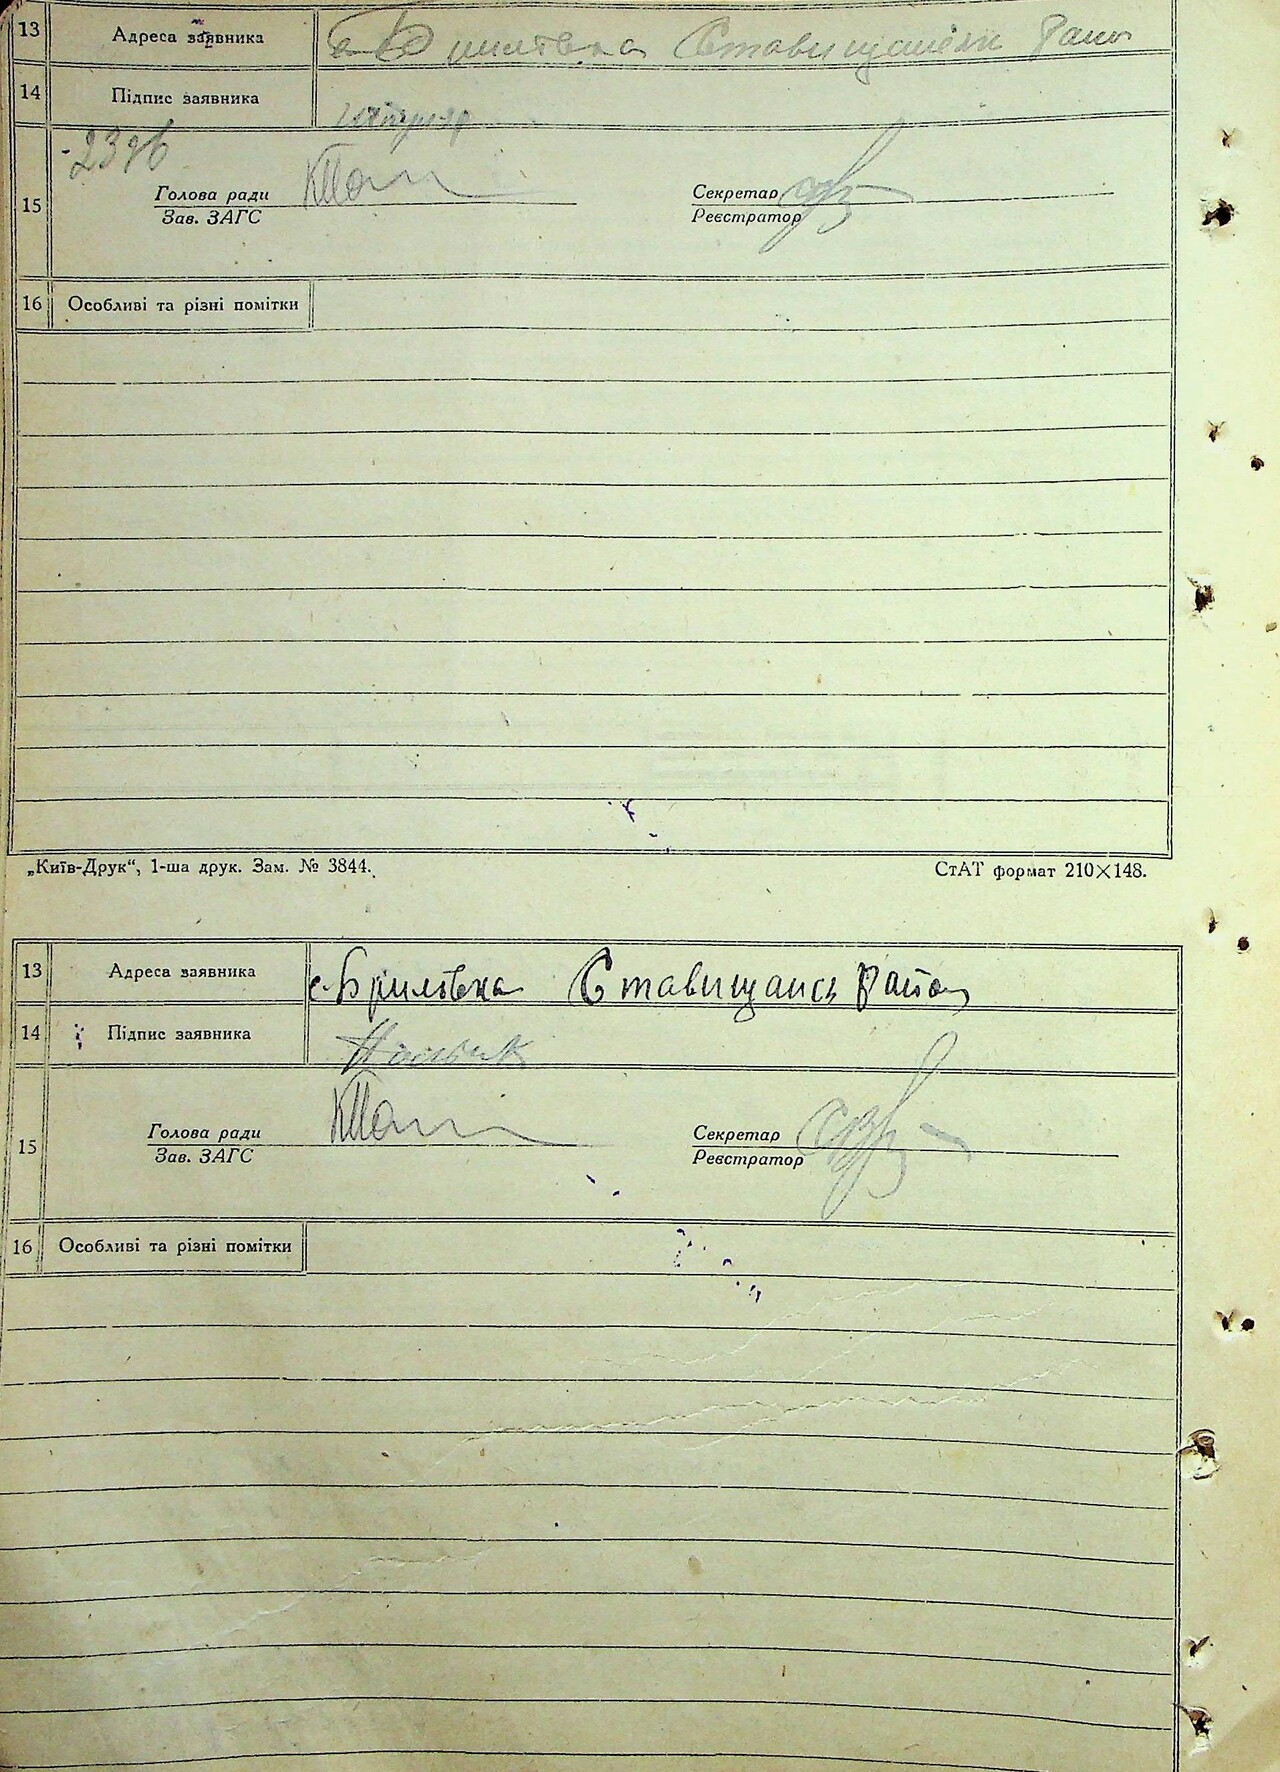 13 Адреса заявника Ставищански Район
14 Підпис заявника
Голова ради Секретар
15
Зав. ЗАГС Реєстратор
16 Особливі та різні помітки
„Київ-Друк“, 1-ша друк. Зам. № 3844. СтАТ формат 210×148.
13 Адреса заявника с. Брилівка Ставищанск Район
14 Підпис заявника
Голова ради Секретар
15
Зав. ЗАГС Реєстратор
16 Особливі та різні помітки